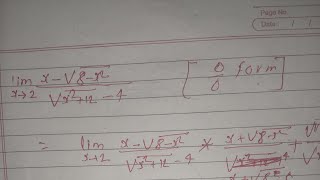 Page No.
Date : / /
lim x→2 x - √8-x² / √x²+12 - 4 [ 0/0 form ]
= lim x→2 x - √8-x² / √x²+12 - 4 * x + √8-x²